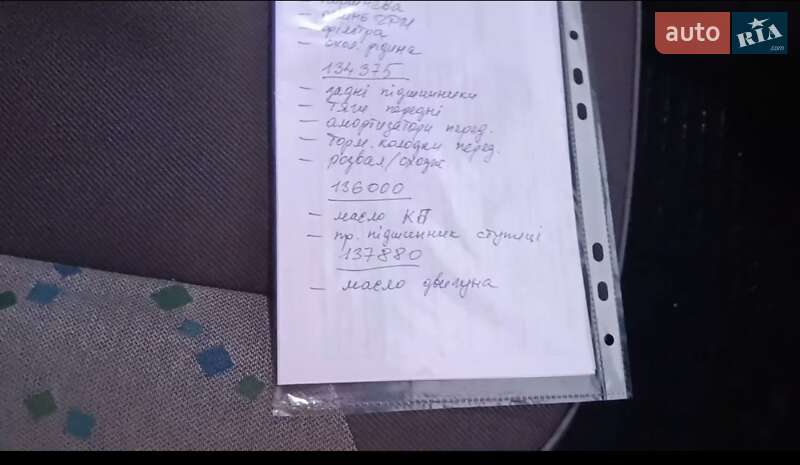 ГРМ
фільтра
охол. рідина
134375
- задні підшипники
- тяги передні
- амортизатори перед.
- торм. колодки перед.
- розвал/сходж
136000
- масло КП
- пр. підшипник ступиці
137880
- масло двигуна
auto RIA.com